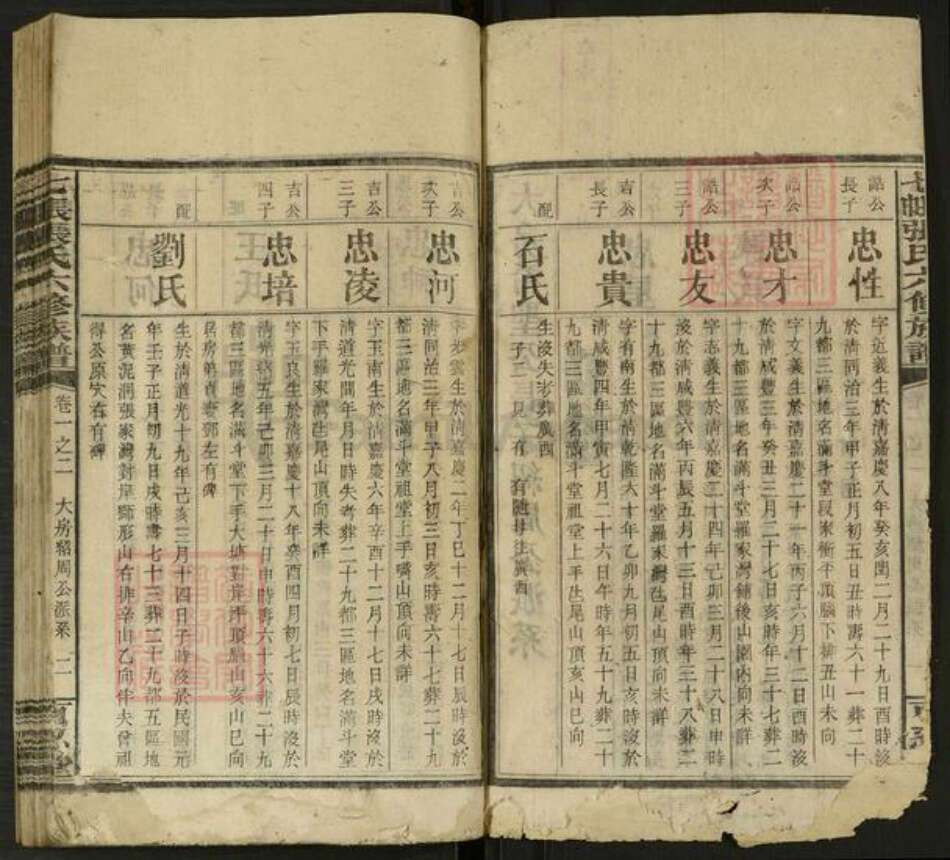 七帳張氏六修族譜
誥公長子
忠性
字近義生於清嘉慶八年癸亥閏二月二十九日酉時沒
於清同治三年甲子正月初五日丑時壽六十一葬二十
九都三區地名滿斗堂段家衝平頂腦下排丑山未向
誥公次子
忠才
字文義生於清嘉慶二十一年丙子六月十二日酉時沒
於清咸豐三年癸丑三月二十七日亥時年三十七葬二
十九都三區地名滿斗堂羅家灣鋪後山園內向未詳
誥公三子
忠友
字志義生於清嘉慶二十四年己卯三月二十八日申時
沒於清咸豐六年丙辰五月十三日酉時年三十八葬二
十九都三區地名滿斗堂羅家灣𡉏尾山頂向未詳
吉公長子
忠貴
字有南生於清乾隆六十年乙卯九月初五日亥時沒於
清咸豐四年甲寅七月二十六日午時年五十九葬二十
九都三區地名滿斗堂祖堂上手𡉏尾山頂亥山巳向
配
石氏
生沒失考葬廣西
子二 見有 有隨母往廣西
吉公次子
忠河
字步雲生於清嘉慶二年丁巳十二月十七日辰時沒於
清同治三年甲子八月初三日亥時壽六十七葬二十九
都三區地名滿斗堂祖堂上手嘴山頂向未詳
吉公三子
忠凌
字玉南生於清嘉慶六年辛酉十二月十七日戌時沒於
清道光間年月日時失考葬二十九都三區地名滿斗堂
下手羅家灣𡉏尾山頂向未詳
吉公四子
忠培
字玉良生於清嘉慶十八年癸酉四月初七日辰時沒於
清光緒五年己卯三月二十日申時壽六十六葬二十九
都三區地名滿斗堂下手大塘對岸坪頂腦山亥山巳向
居房弟貴妻鄧左有碑
配
劉氏
生於清道光十九年己亥三月十四日子時沒於民國元
年壬子正月初九日戌時壽七十三葬二十九都五區地
名黃泥潤張家灣對岸獅形山右排辛山乙向伴夫曾祖
得公原穴右有碑
七帳張氏六修族譜
卷一之二
大房貂周公派系
二